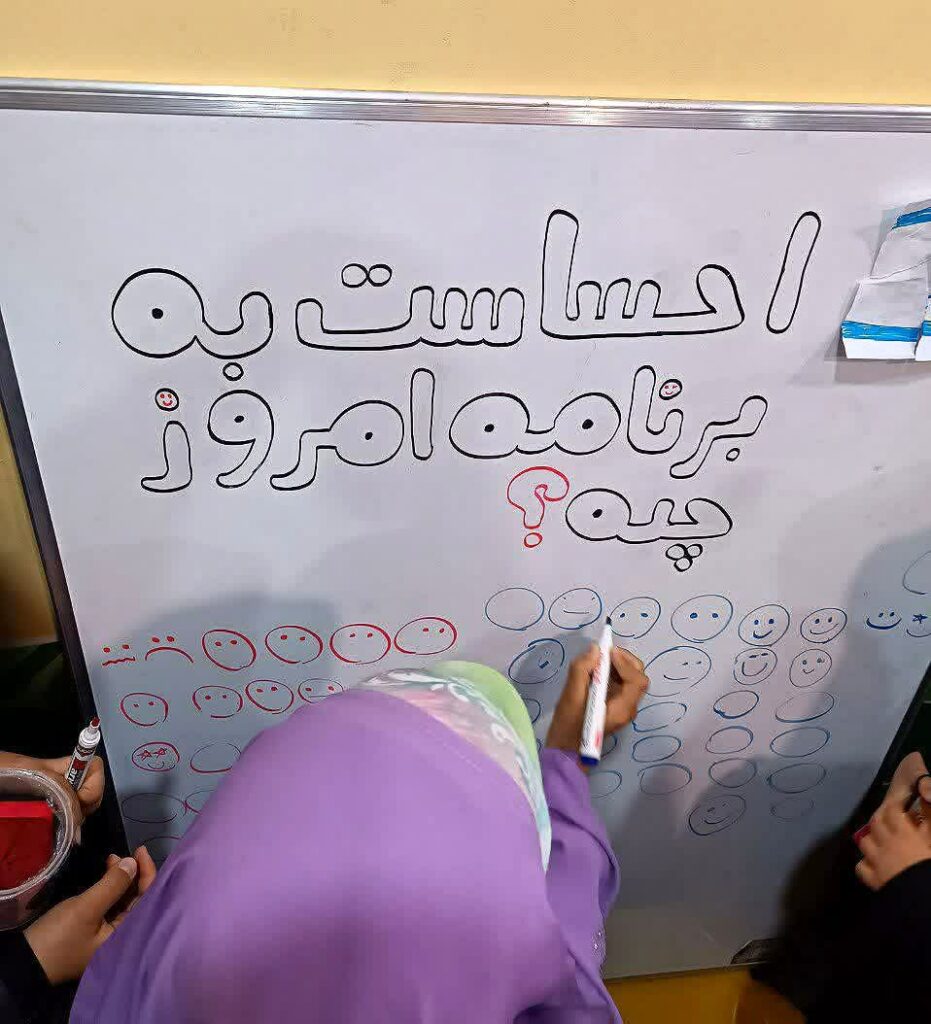 احساست به
برنامه امروز
چیه ؟